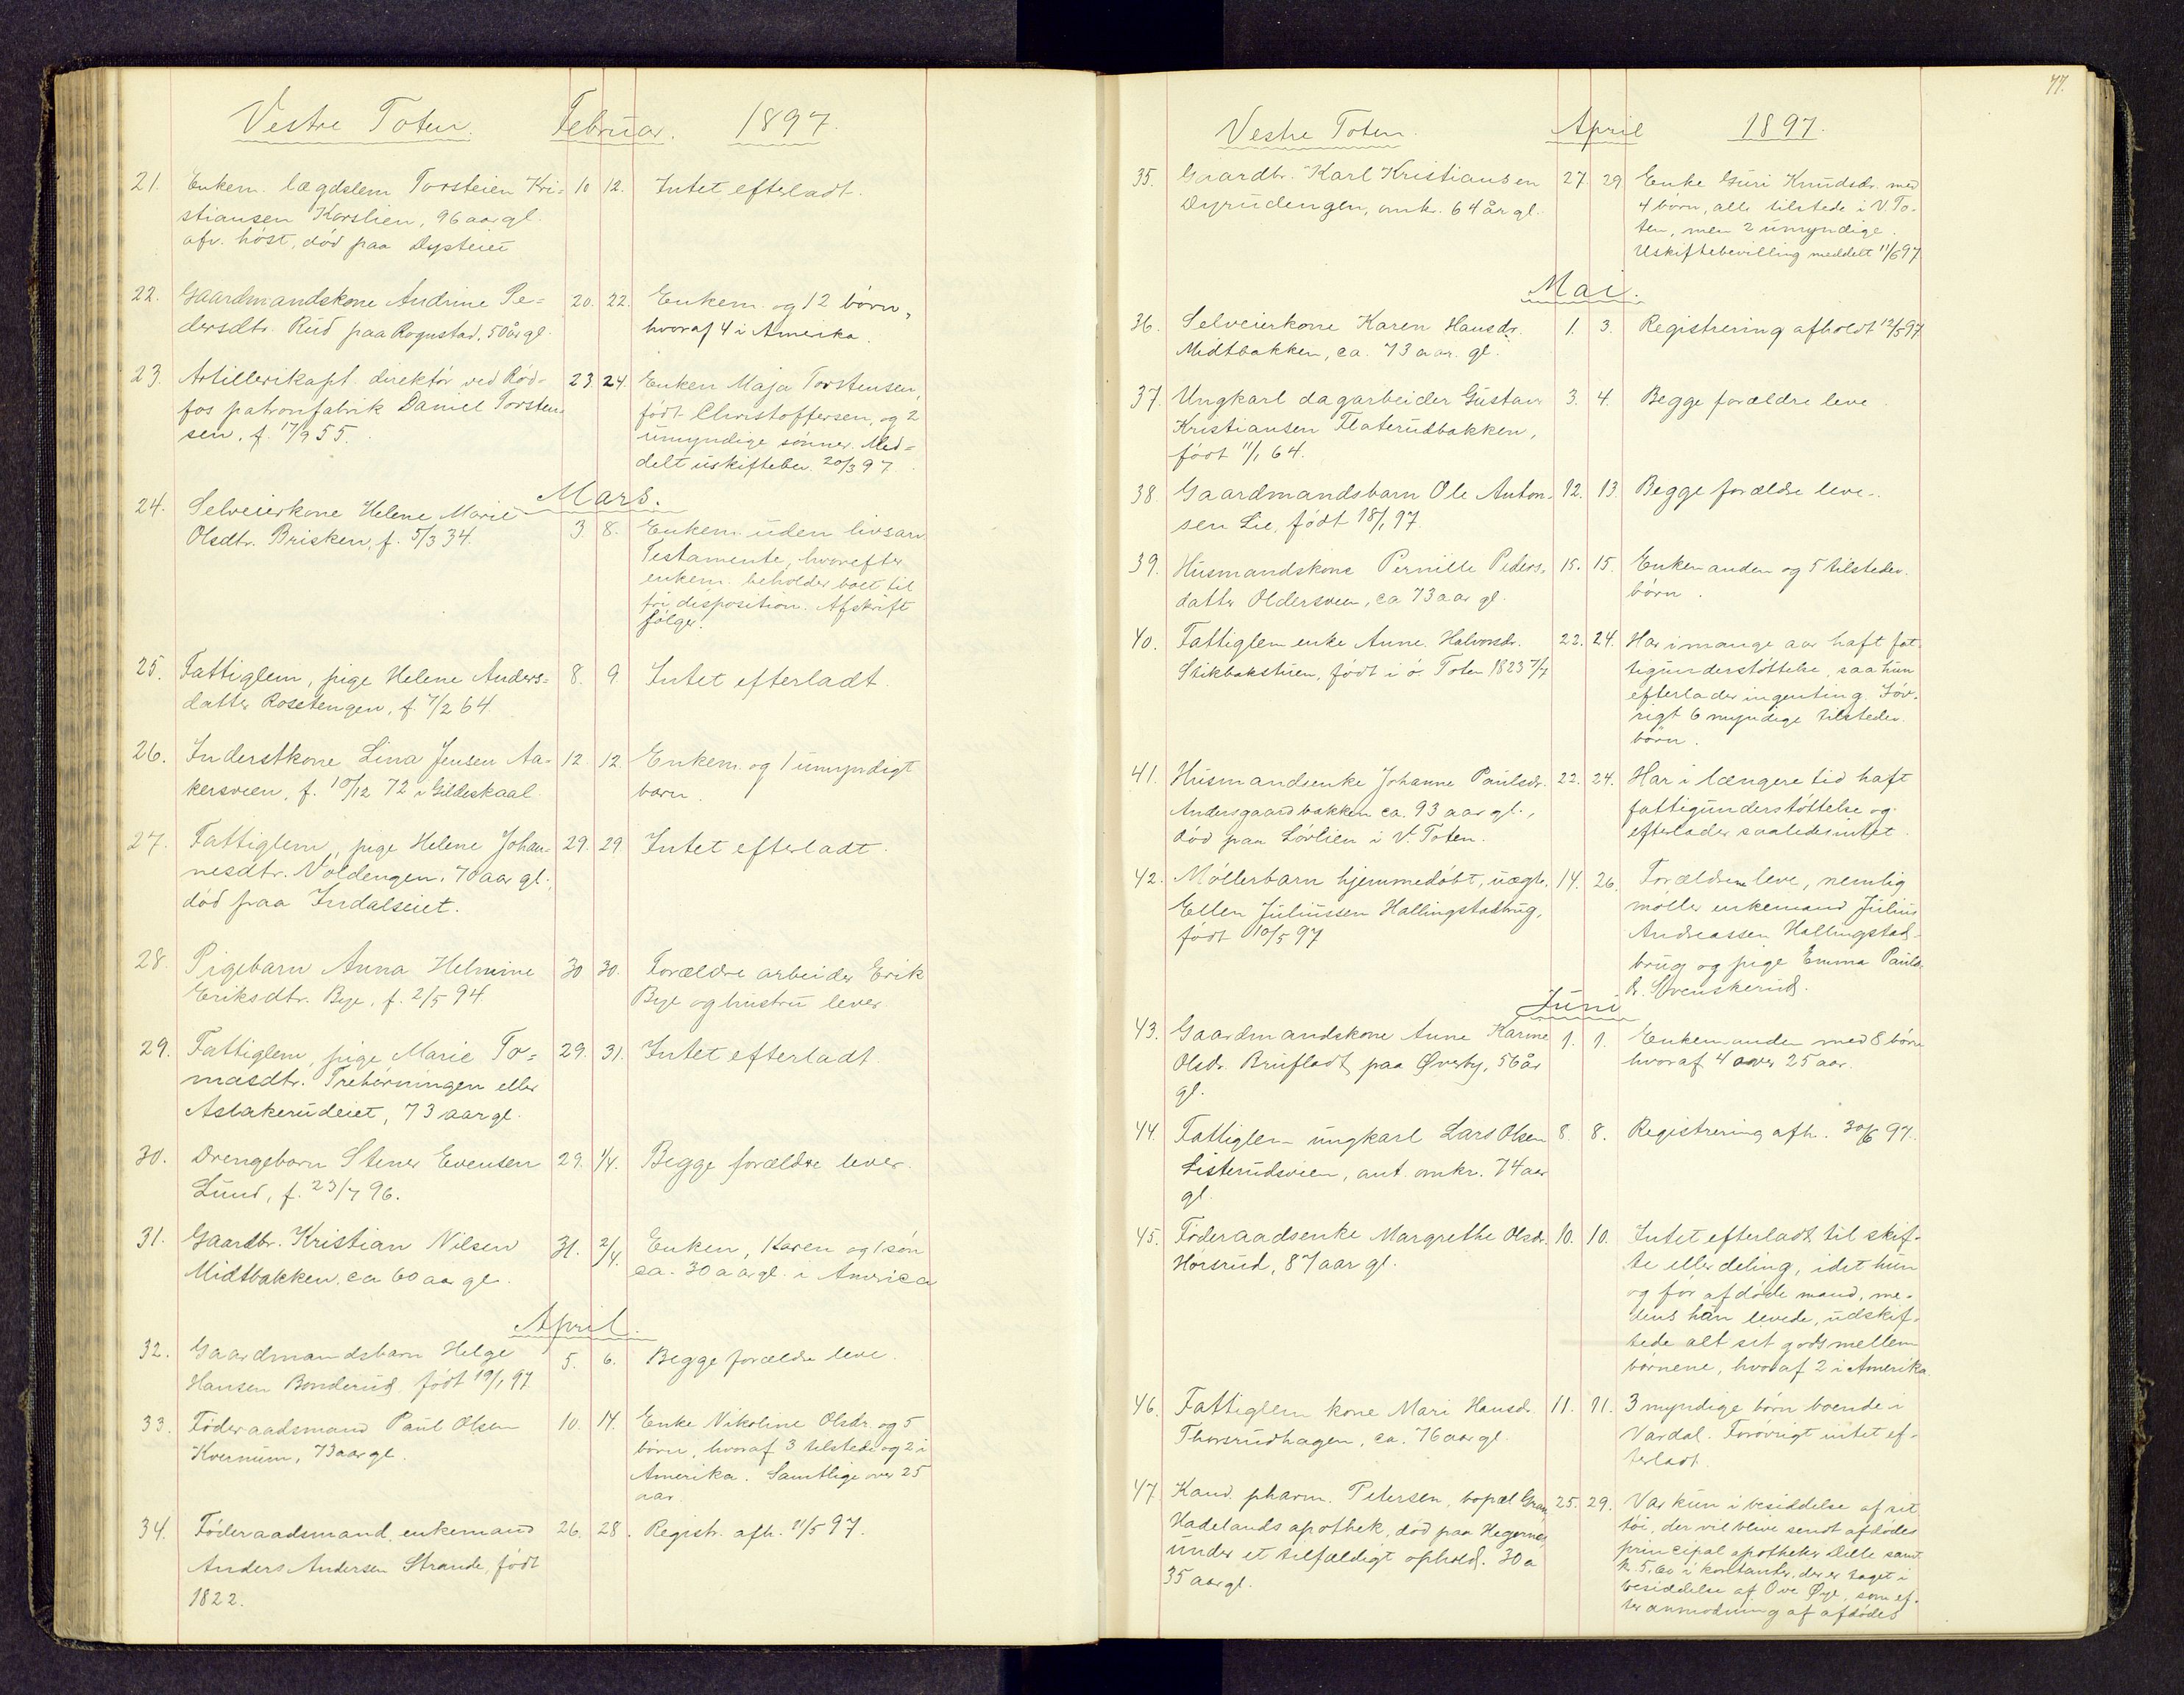 Vestre Toten. Februar. 1897.
21. Enkem. lægdslem Torsteien Kri= 10 12. Intet efterladt.
stiansen Korslien, 96 aar gl.
afv. høst, død paa Dysteiet
22. Gaardmandskone Andrine Pe= 20. 22. Enkem. og 12 børn,
dersdtr. Rud paa Rognstad, 50 år gl. hvoraf 4 i Amerika.
23. Artillerikapt. direktør ved Rød= 23 24. Enken Maja Torstensen,
fos patronfabrik Daniel Torsten= født Christoffersen, og 2
sen, f. 17/9 55. umyndige sønner. Med=
delt uskiftebev. 20/3 97.
Mars.
24. Selveierkone Helene Marie
Olsdtr. Brisken, f. 5/3 34. 3 8. Enkem. uden livsarv.
Testamente, hvorefter
enkem. beholder boet til
fri disposition. Afskrift
følger.
25. Fattiglem, pige Helene Anders= 8. 9 Intet efterladt.
datter Rosetengen, f. 7/2 64.
26. Inderstkone Lina Jensen Aa= 12 12. Enkem. og 1 umyndigt
kersveen, f. 10/12 72 i Gildeskaal barn.
27. Fattiglem, pige Helene Johan= 29. 29 Intet efterladt.
nesdtr. Voldengen, 70 aar gl.,
død paa Indalseiet.
28. Pigebarn Anna Helmine 30 30. Forældre arbeider Erik
Eriksdtr. Bye, f. 2/5 94. Bye og hustru lever.
29. Fattiglem, pige Marie To= 29. 31. Intet efterladt.
masdtr. Trehørningen eller
Aslakerudeiet, 73 aar gl.
30. Drengebarn Stener Evensen 29. 1/4. Begge forældre lever.
Lund, f. 23/7 96.
31. Gaardbr. Kristian Nilsen 31. 2/4. Enken, Karen og 1 søn
Midtbakken, ca 60 aar gl. ca. 30 aar gl. i America
April.
32. Gaardmandsbarn Helge 5. 6. Begge forældre leve.
Hansen Bonderud, født 19/1 97.
33. Føderaadsmand Paul Olsen 10. 14. Enke Nikoline Olsdr. og 5
Kvernum, 73 aar gl. børn, hvoraf 3 tilstede og 2 i
Amerika. Samtlige over 25
aar.
34. Føderaadsmand, enkemand 26. 28. Registr. afh. 11/5 97.
Anders Andersen Strande, født
1822.
77.
Vestre Toten. April 1897.
35. Gaardbr. Karl Kristiansen 27. 29 Enke Guri Knudsdr. med
Dyrudengen, omkr. 64 år gl. 4 børn, alle tilstede i V. To-
ten, men 2 umyndige.
Uskiftebevilling meddelt 11/6 97
Mai.
36. Selveierkone Karen Hansdr. 1. 3. Registrering afholdt 12/5 97
Midtbakken, ca. 73 aar gl.
37. Ungkarl dagarbeider Gustav 3. 4. Begge forældre leve
Kristiansen Flaterudbakken,
født 11/1 64.
38. Gaardmandsbarn Ole Anton- 12. 13. Begge forældre leve.
sen Lie, født 18/1 97.
39. Husmandskone Pernille Peders- 15. 15. Enkemanden og 5 tilstedev.
datter Oldersveen, ca 73 aar gl. børn.
40. Fattiglem enke Anne Halvorsdr. 22. 24. Har i mange aar haft fat-
Stikbakstuen, født i ø. Toten 1823 7/7 tigunderstøttelse, saa hun
efterlader ingenting. Iøv-
rigt 6 myndige tilstedev.
børn.
41. Husmandsenke Johanne Paulsdr. 22. 24. Har i længere tid haft
Andersgaardbakken ca. 93 aar gl., fattigunderstøttelse og
død paa Løvlien i V. Toten. efterlader saaledes intet.
42. Møllerbarn hjemmedøbt, uægte, 14. 26. Forældrene leve, nemlig
Ellen Juliussen Hallingstadbrug, møller enkemand Julius
født 10/5 97 Andreassen Hallingstad-
brug og pige Emma Pauls-
dr. Svenskerud.
Juni
43. Gaardmandskone Anne Karine 1. 1. Enkemanden med 8 børn
Olsdr. Brufladt, paa Øverby, 56 år hvoraf 4 over 25 aar.
gl.
44. Fattiglem ungkarl Lars Olsen 8. 8. Registrering afh. 30/6 97.
Listerudsveen, ant. omkr. 74 aar
gl.
45. Føderaadsenke Margrethe Olsdr. 10. 10. Intet efterladt til skif-
Horsrud, 87 aar gl. te eller deling, idet hun
og før afdøde mand, me-
dens han levede, udskif-
tede alt sit gods mellem
børnene, hvoraf 2 i Amerika
46. Fattiglem kone Mari Hansdr. 11. 11. 3 myndige børn boende i
Thorsrudhagen, ca. 76 aar gl. Vardal. Forøvrigt intet ef-
terladt.
47. Kand. pharm. Petersen, bopæl Gran 25. 29. Var kun i besiddelse af sit
Hadelands apothek, død paa Hegernæs tøi, der vil blive sendt afdødes
under et tilfældigt ophold. 30 a principal apotheker Delle samt
35 aar gl. k. 5,60 i kontanter, der er taget i
besiddelse af Ove Øye, som ef-
ter anmodning af afdødes